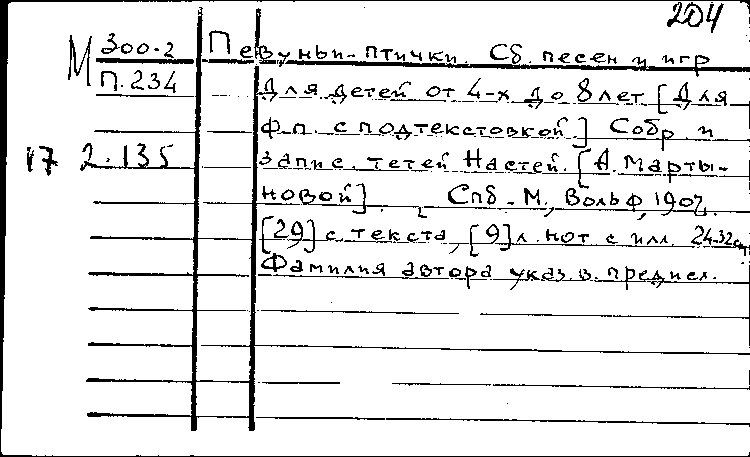 204
М 300.2 Певуньи-птички. Сб. песен и игр
П.234 для детей от 4-х до 8 лет [Для
ф.п. с подтекстовкой.] Собр. и
17 2.135 запис. тетей Настей. [А. Марты-
новой]. Спб.-М., Вольф, 1902.
[29] с. текста, [9] л. нот с илл. 24.32см
Фамилия автора указ. в предисл.